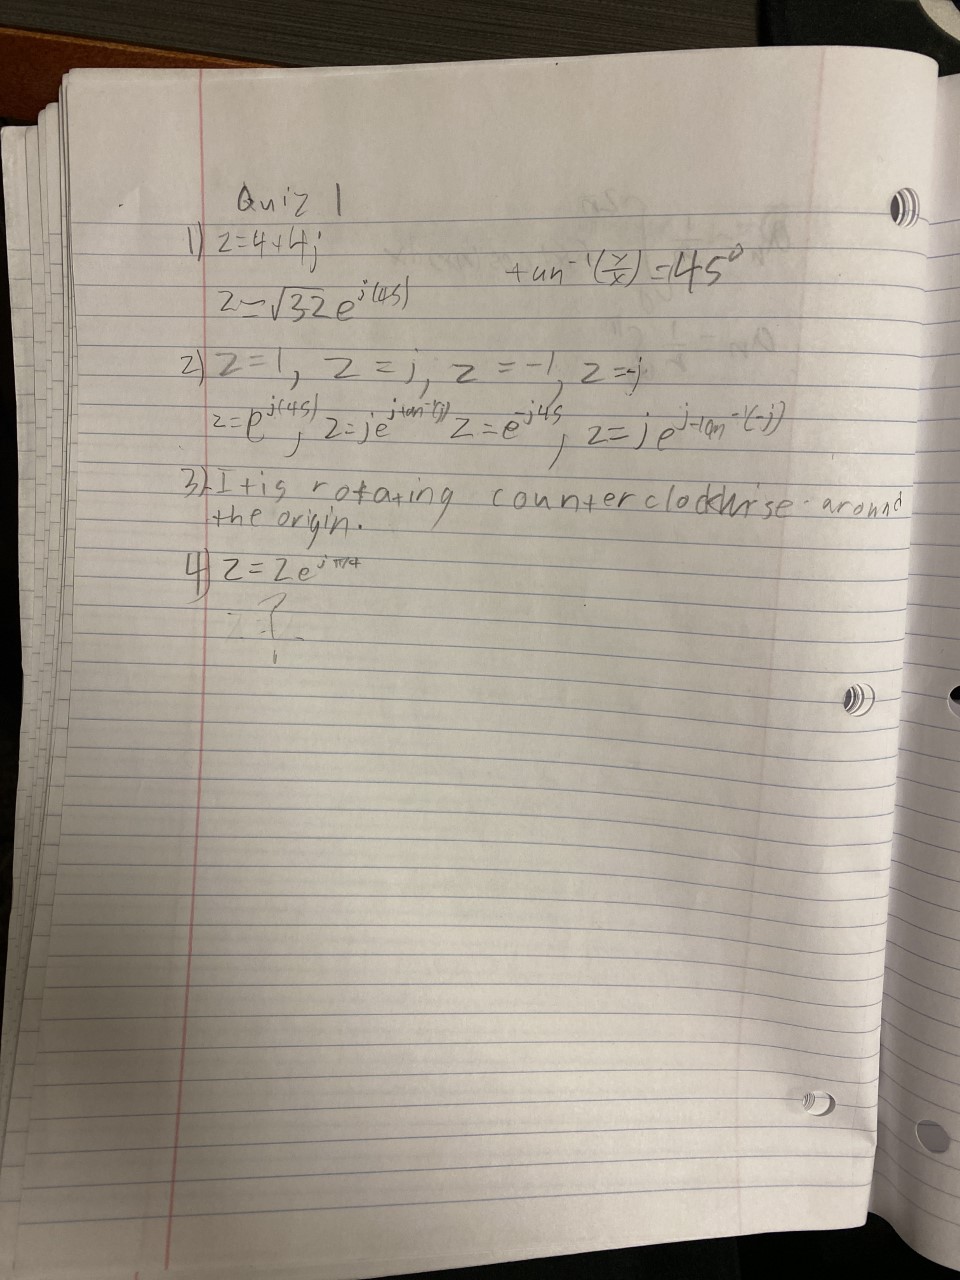 Quiz 1
1) z=4+4j
tan⁻¹(y/x)=45°
z=√32e^j(45)
2) z=1, z=j, z=-1, z=-j
z=e^j(45), z=je^jtan⁻¹(j) z=e^-j45, z=je^j-tan⁻¹(-j)
3) It is rotating counterclockwise around
the origin.
4) z=2e^jπ/4
?